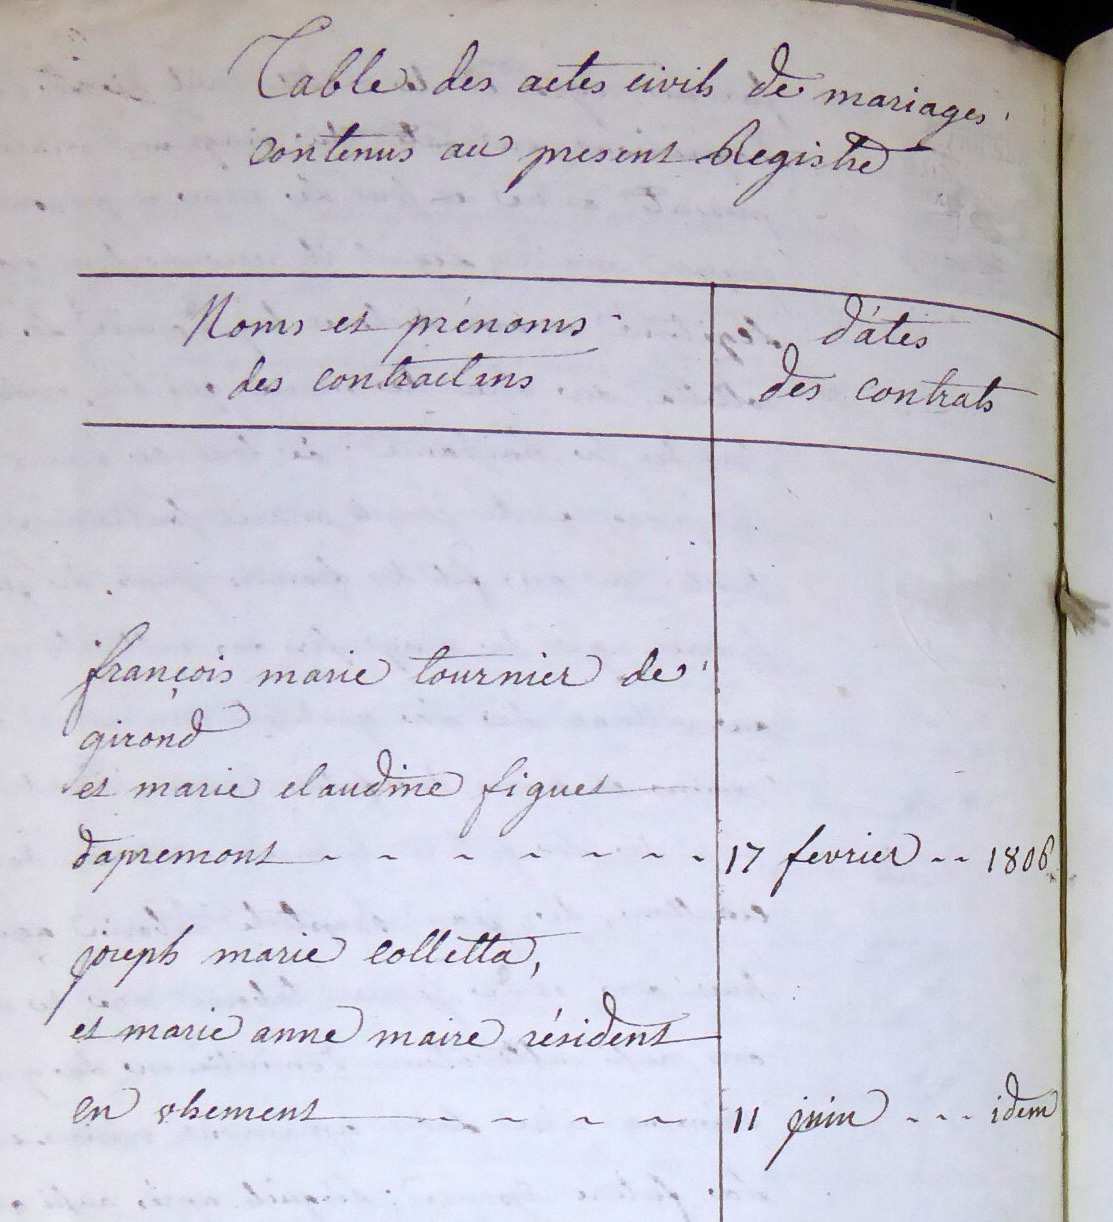 Table des actes civils de mariages
contenus au present Registre
Noms et prénoms
des contractans
dátes
des contrats
françois marie tournier de
girond
et marie claudine figuet
dapremont - - - - - - - 17 fevrier - - 1806
joseph marie Colletta,
et marie anne maire résident
en - - - - 11 juin - - - idem